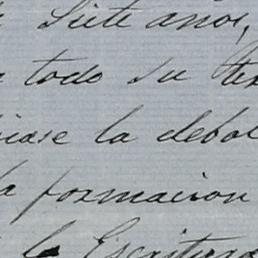 Siete años,
todo su tex
la debol
la formacion
la Escritura